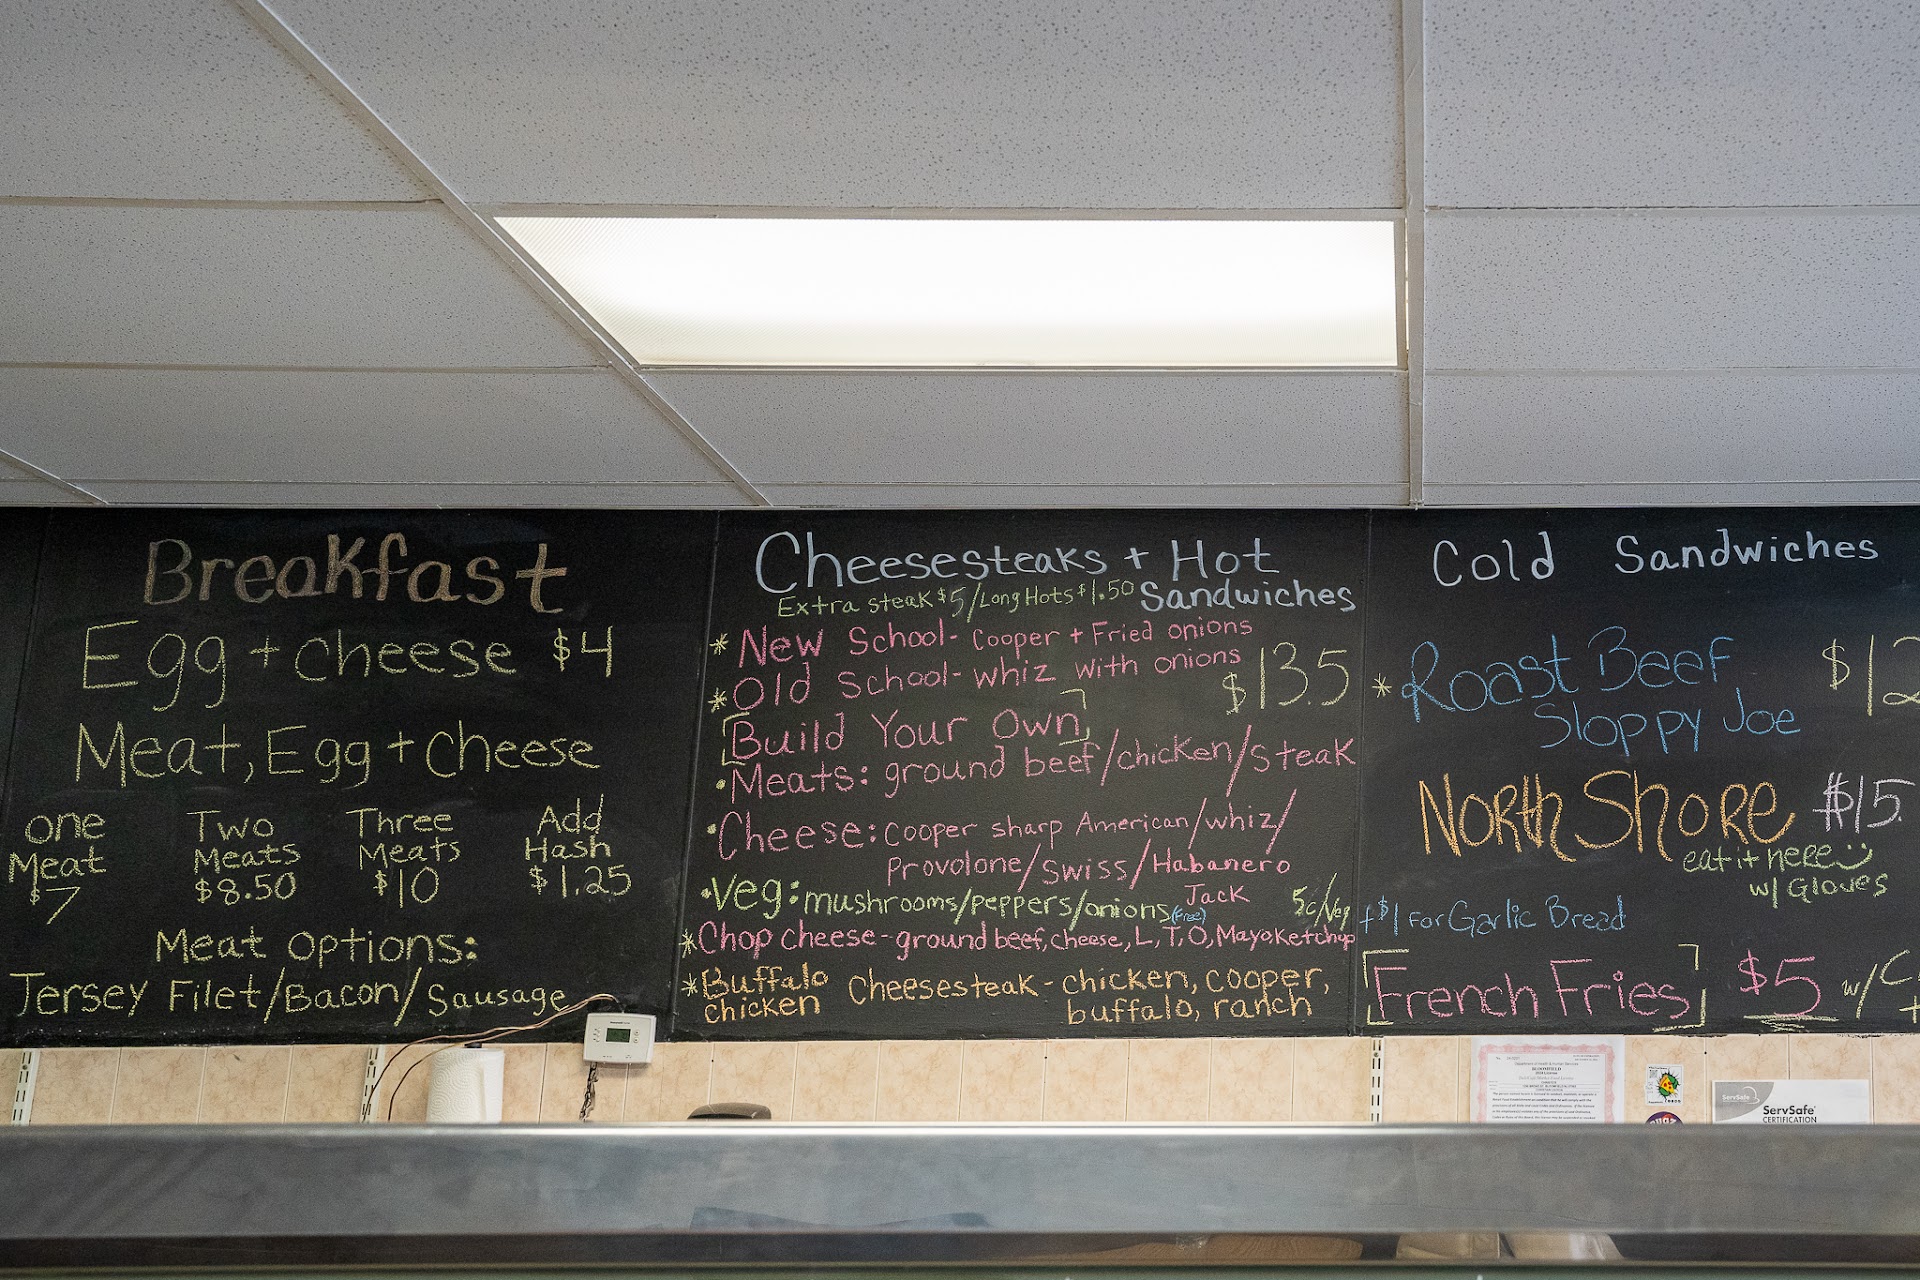 Breakfast
Egg + cheese $4
Meat, Egg + cheese
One Meat $7
Two Meats $8.50
Three Meats $10
Add Hash $1.25
Meat options:
Jersey Filet/Bacon/Sausage
Cheesesteaks + Hot Sandwiches
Extra steak $5/Long Hots $1.50
* New School - Cooper + Fried onions
* Old School - whiz with onions
$13.5
[Build Your Own]
• Meats: ground beef/chicken/steak
• Cheese: cooper sharp American/whiz/
Provolone/Swiss/Habanero
Jack
• Veg: mushrooms/peppers/onions (free)
* Chop cheese - ground beef, cheese, L, T, O, Mayo, Ketchup
* Buffalo chicken Cheesesteak - chicken, cooper,
buffalo, ranch
Cold Sandwiches
* Roast Beef $12
Sloppy Joe
North Shore $15
eat it here
w/ Gloves
+$1 for Garlic Bread
[French Fries] $5 w/
BLOOMFIELD
ServSafe
ServSafe
CERTIFICATION